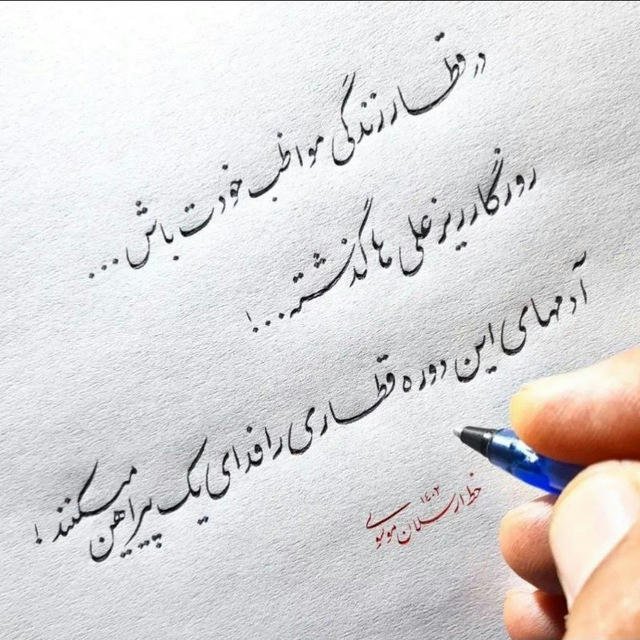 در قطار زندگی مواظب خودت باش...
روزگار ریزعلی ها گذشته...!
آدمهای این دوره قطاری را فدای یک پیراهن میکنند!
خط ارسلان موسوی
۱۴۰۲